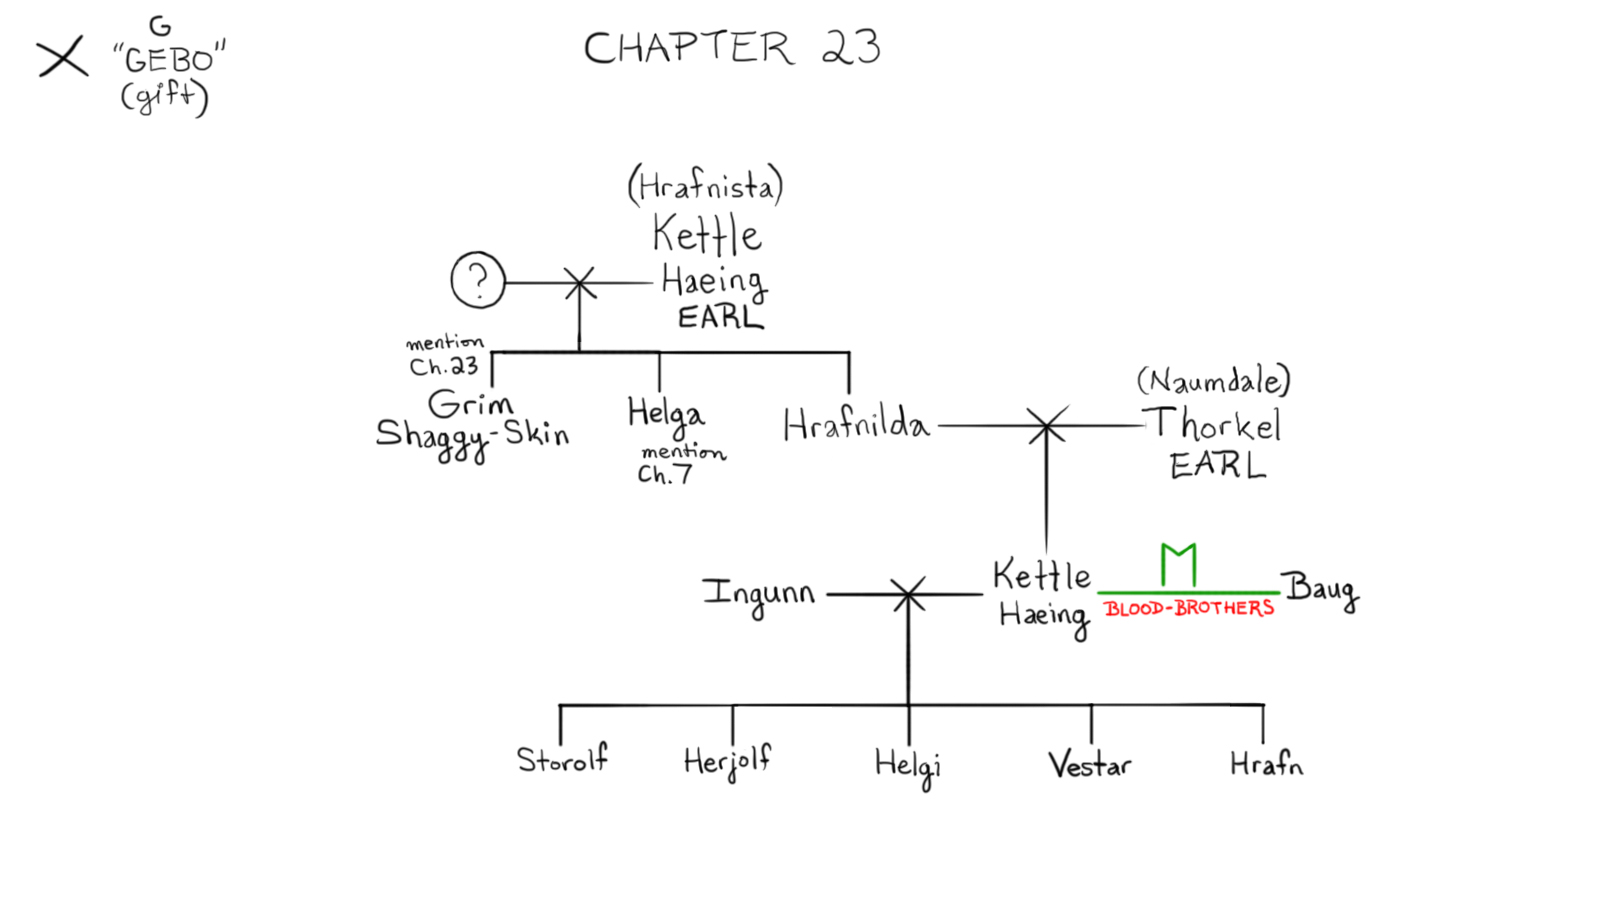 G
"GEBO"
(gift)
CHAPTER 23
(Hrafnista)
Kettle
Haeing
EARL
?
mention
Ch.23
Grim
Shaggy-Skin
Helga
mention
Ch.7
Hrafnilda
(Naumdale)
Thorkel
EARL
Ingunn
Kettle
Haeing
BLOOD-BROTHERS
Baug
Storolf
Herjolf
Helgi
Vestar
Hrafn